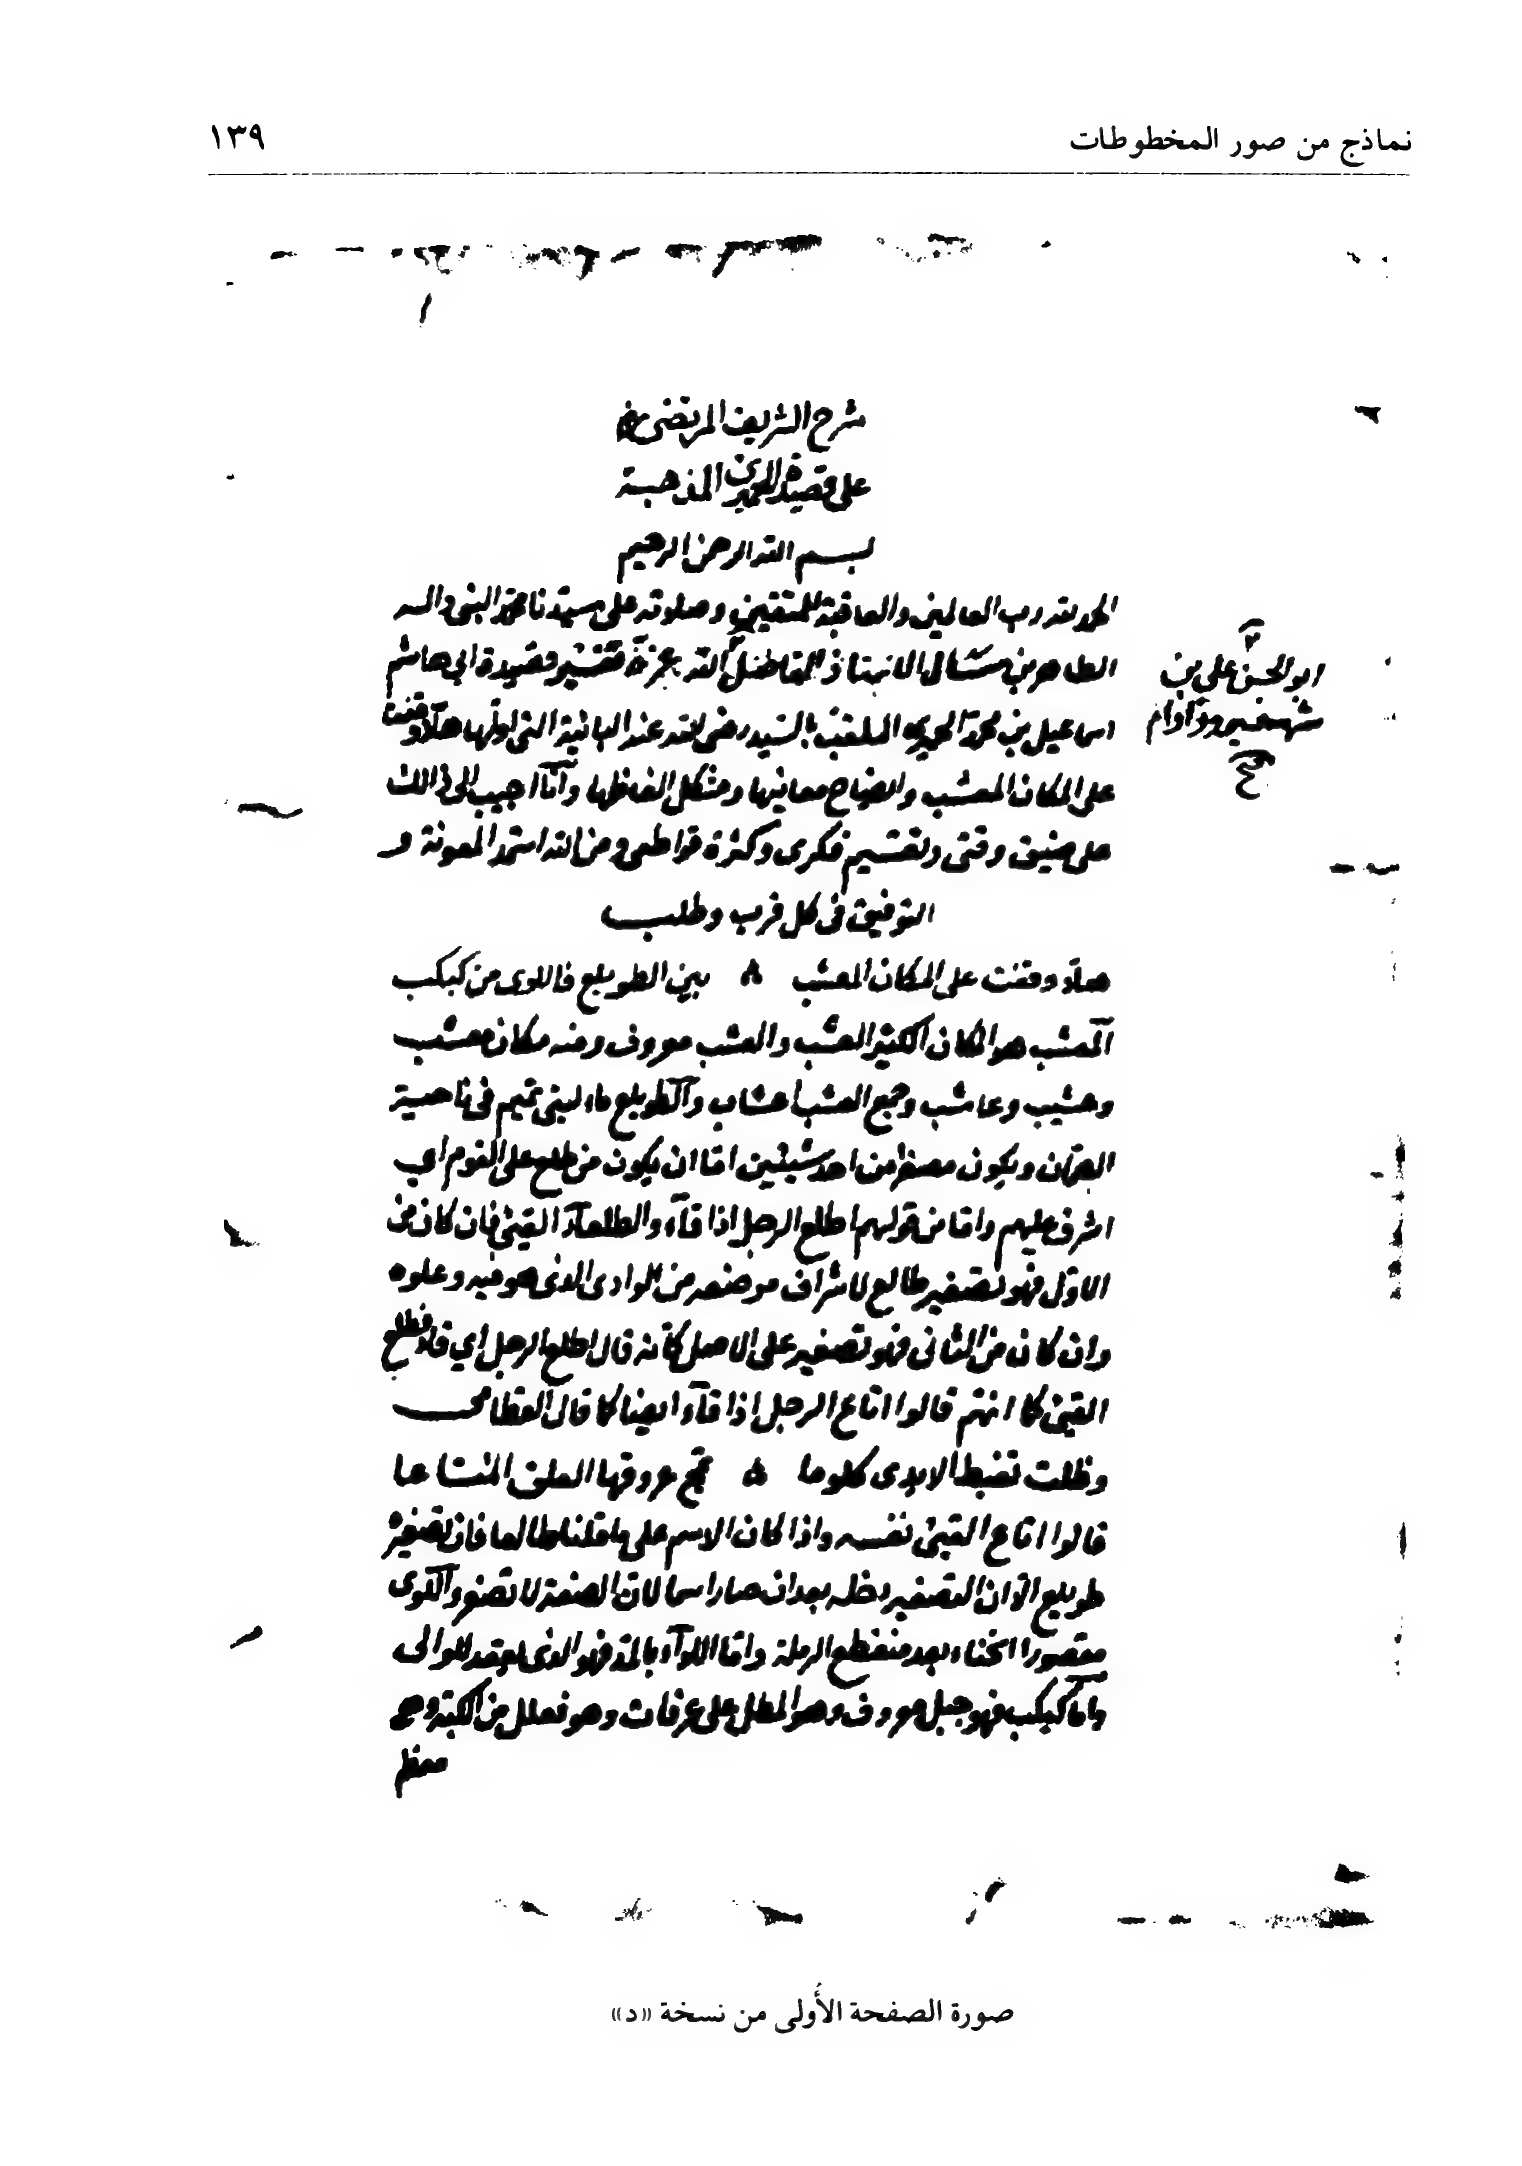 نماذج من صور المخطوطات ١٣٩
شرح الشريف المرتضى
على قصيدة الحميري المذهبة
بسم الله الرحمن الرحيم
الحمد لله رب العالمين والعاقبة للمتقين وصلوته على سيدنا محمد النبي واله
الطاهرين سئال الاستاذ الفاضل الله بعزته تفسير قصيدة ابي هاشم
ابو الحسن علي بن
اسماعيل بن محمد الحميري الملقب بالسيد رضي الله عنه البائية التي اولها هلا وقفت
على المكان المعشب وايضاح معانيها ومشكل الفاظها وانا اجيب الى ذلك
على ضيق وقتي وتقسيم فكري وكثرة قواطعي ومن الله استمد المعونة و
التوفيق في كل قرب وطلب
هلا وقفت على المكان المعشب ۵ بين الطويلع فاللوى من كبكب
المعشب هو المكان الكثير العشب والعشب معروف ومنه مكان معشب
وعشيب وعاشب وجمع العشب اعشاب والطويلع ماء لبني تميم في ناحية
الصمان ويكون مصغرا من احد شيئين اما ان يكون من طلع على القوم اي
اشرف عليهم واما من قولهم اطلع الرجل اذا قاء والطلعاء القيئ فان كان من
الاول فهو تصغير طالع لاشراف موضعه من الوادي الذي هو فيه وعلوه
وان كان من الثاني فهو تصغير على الاصل كانه قال اطلع الرجل اي قاء فطلع
القيئ كما انهم قالوا اتاع الرجل اذا قاء ايضا كما قال القطامي
وظلت تغبط الايدي كلوما ۵ تمج عروقها العلق المتاعا
قالوا اتاع القيئ نفسه واذا كان الاسم على ما قلنا طالعا فان تصغيره
طويلع الا ان التصغير دخله بعد ان صار اسما لان الصفة لا تصغر واللوى
مقصورا انحناء بعد منقطع الرملة واما اللواء بالمد فهو الذي يعقد للوالي
واما كبكب فهو جبل معروف وهو المطل على عرفات وهو فعلل من الكبة وهي
معظم
صورة الصفحة الأولى من نسخة «د»